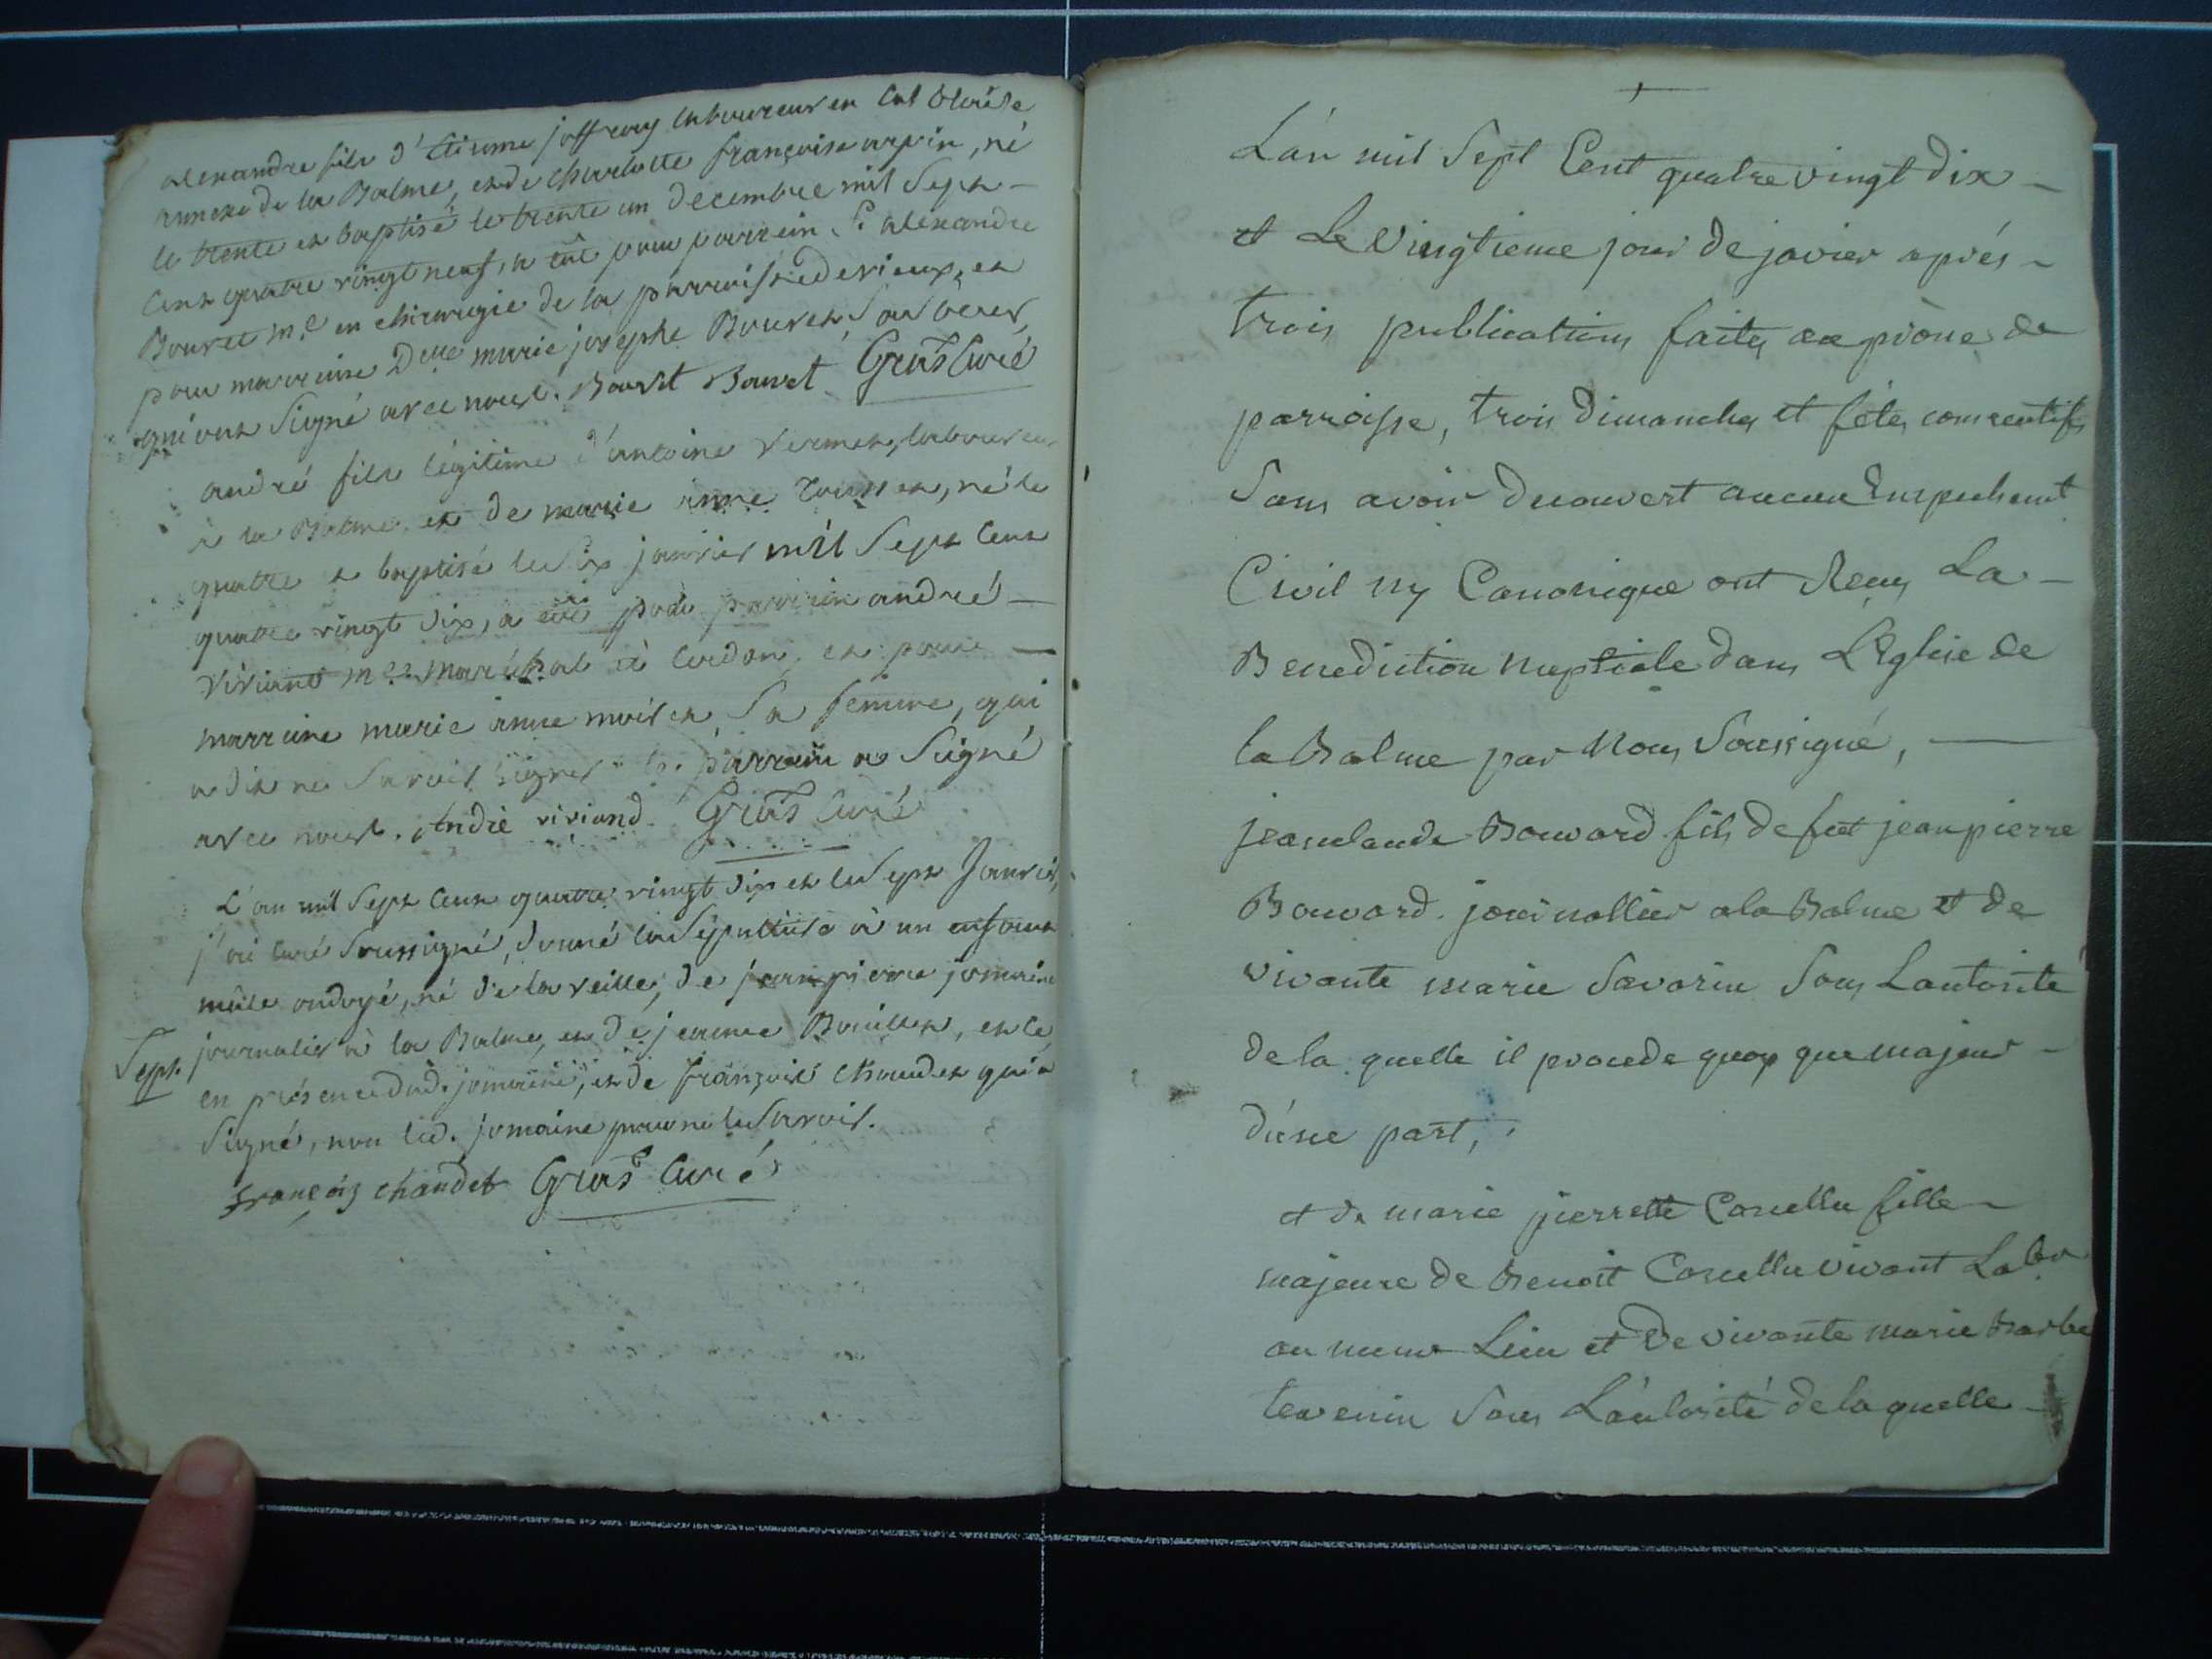 alexandre fils d'Etienne joffray laboureur en
annexe de la Balme, et de charlotte françoise arpin, né
le trente et baptisé le trente un decembre mil Sept
Cent quatre vingt neuf, a eut pour parrein Sr alexandre
Bouvet me en chirurgie de la parroisse de rieux, et
pour marreine Dlle marie josephe Bouvet,
qui ont Signé avec nous. Bouvet Bouvet Gras Curé
andré fils légitime d'antoine vermet, laboureur
à la Balme, et de marie anne, né le
quatre et baptisé le Six janvier mil Sept Cent
quatre vingt dix, a eut pour parrein andré
viviand me maréchal à Cerdon, et pour
marreine marie anne Sa femme, qui
a dit ne Savoir signer le parrein a Signé
avec nous. André viviand Gras Curé
L'an mil Sept Cent quatre vingt dix et le Sept Janvier,
j'ai Curé Soussigné, donné la Sépulture à un enfant
mâle ondoyé, né de la veille, de jean pierre jomaine
journalier à la Balme, et de jeanne Bouillet, et ce
Sept.
en présence dud. jomaine, et de françois chaudet qui a
Signé, non led. jomaine pour ne le Savoir.
françois chaudet Gras Curé
L'an mil Sept Cent quatre vingt dix
et Le Vingtieme jour de javier aprés
trois publications faites au prône de
parroisse, trois dimanches et fétes consecutifs
Sans avoir decouvert aucun Empechemt
Civil ny Canonique ont Reçu La
Benediction nuptiale dans L'Eglise de
la Balme par Nous Soussigné,
jean claude Bouvard fils de feut jean pierre
Bouvard journallier a la Balme et de
vivante marie Savarin Sous Lautorité
de la quelle il procede quoy que majeur
d'une part,
et de marie pierrette fille
majeure de Benoit vivant Labr
au meme Lieu et De vivante marie Barbe
tevenin Sous L'autorité de la quelle